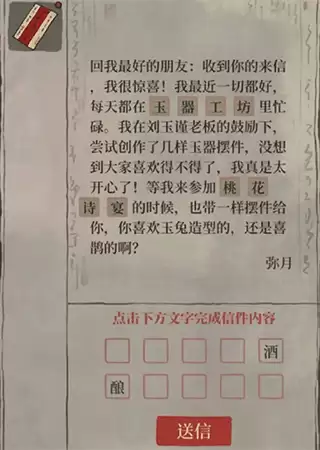 回我最好的朋友：收到你的来信
，我很惊喜！我最近一切都好，
每天都在玉器工坊里忙
碌。我在刘玉谨老板的鼓励下，
尝试创作了几样玉器摆件，没想
到大家喜欢得不得了，我真是太
开心了！等我来参加桃花
诗宴的时候，也带一样摆件给
你，你喜欢玉兔造型的，还是喜
鹊的啊？
弥月
点击下方文字完成信件内容
酒
酿
送信